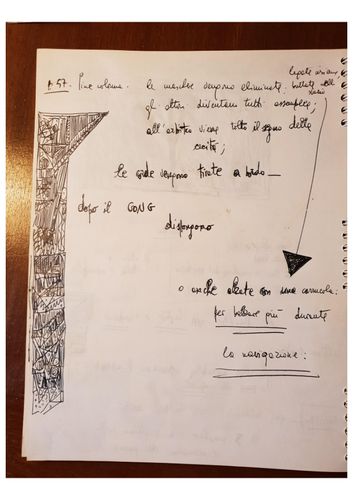 p. 57. Fine colonna. le maschere vengono eliminate;
gli attori diventano tutti assemblea;
all'arbitro viene tolto il segno della
cecità;
le corde vengono tirate a bordo —
dopo il GONG
dispongono
o anche alzate con una carrucola:
per ballare più durante
la navigazione: